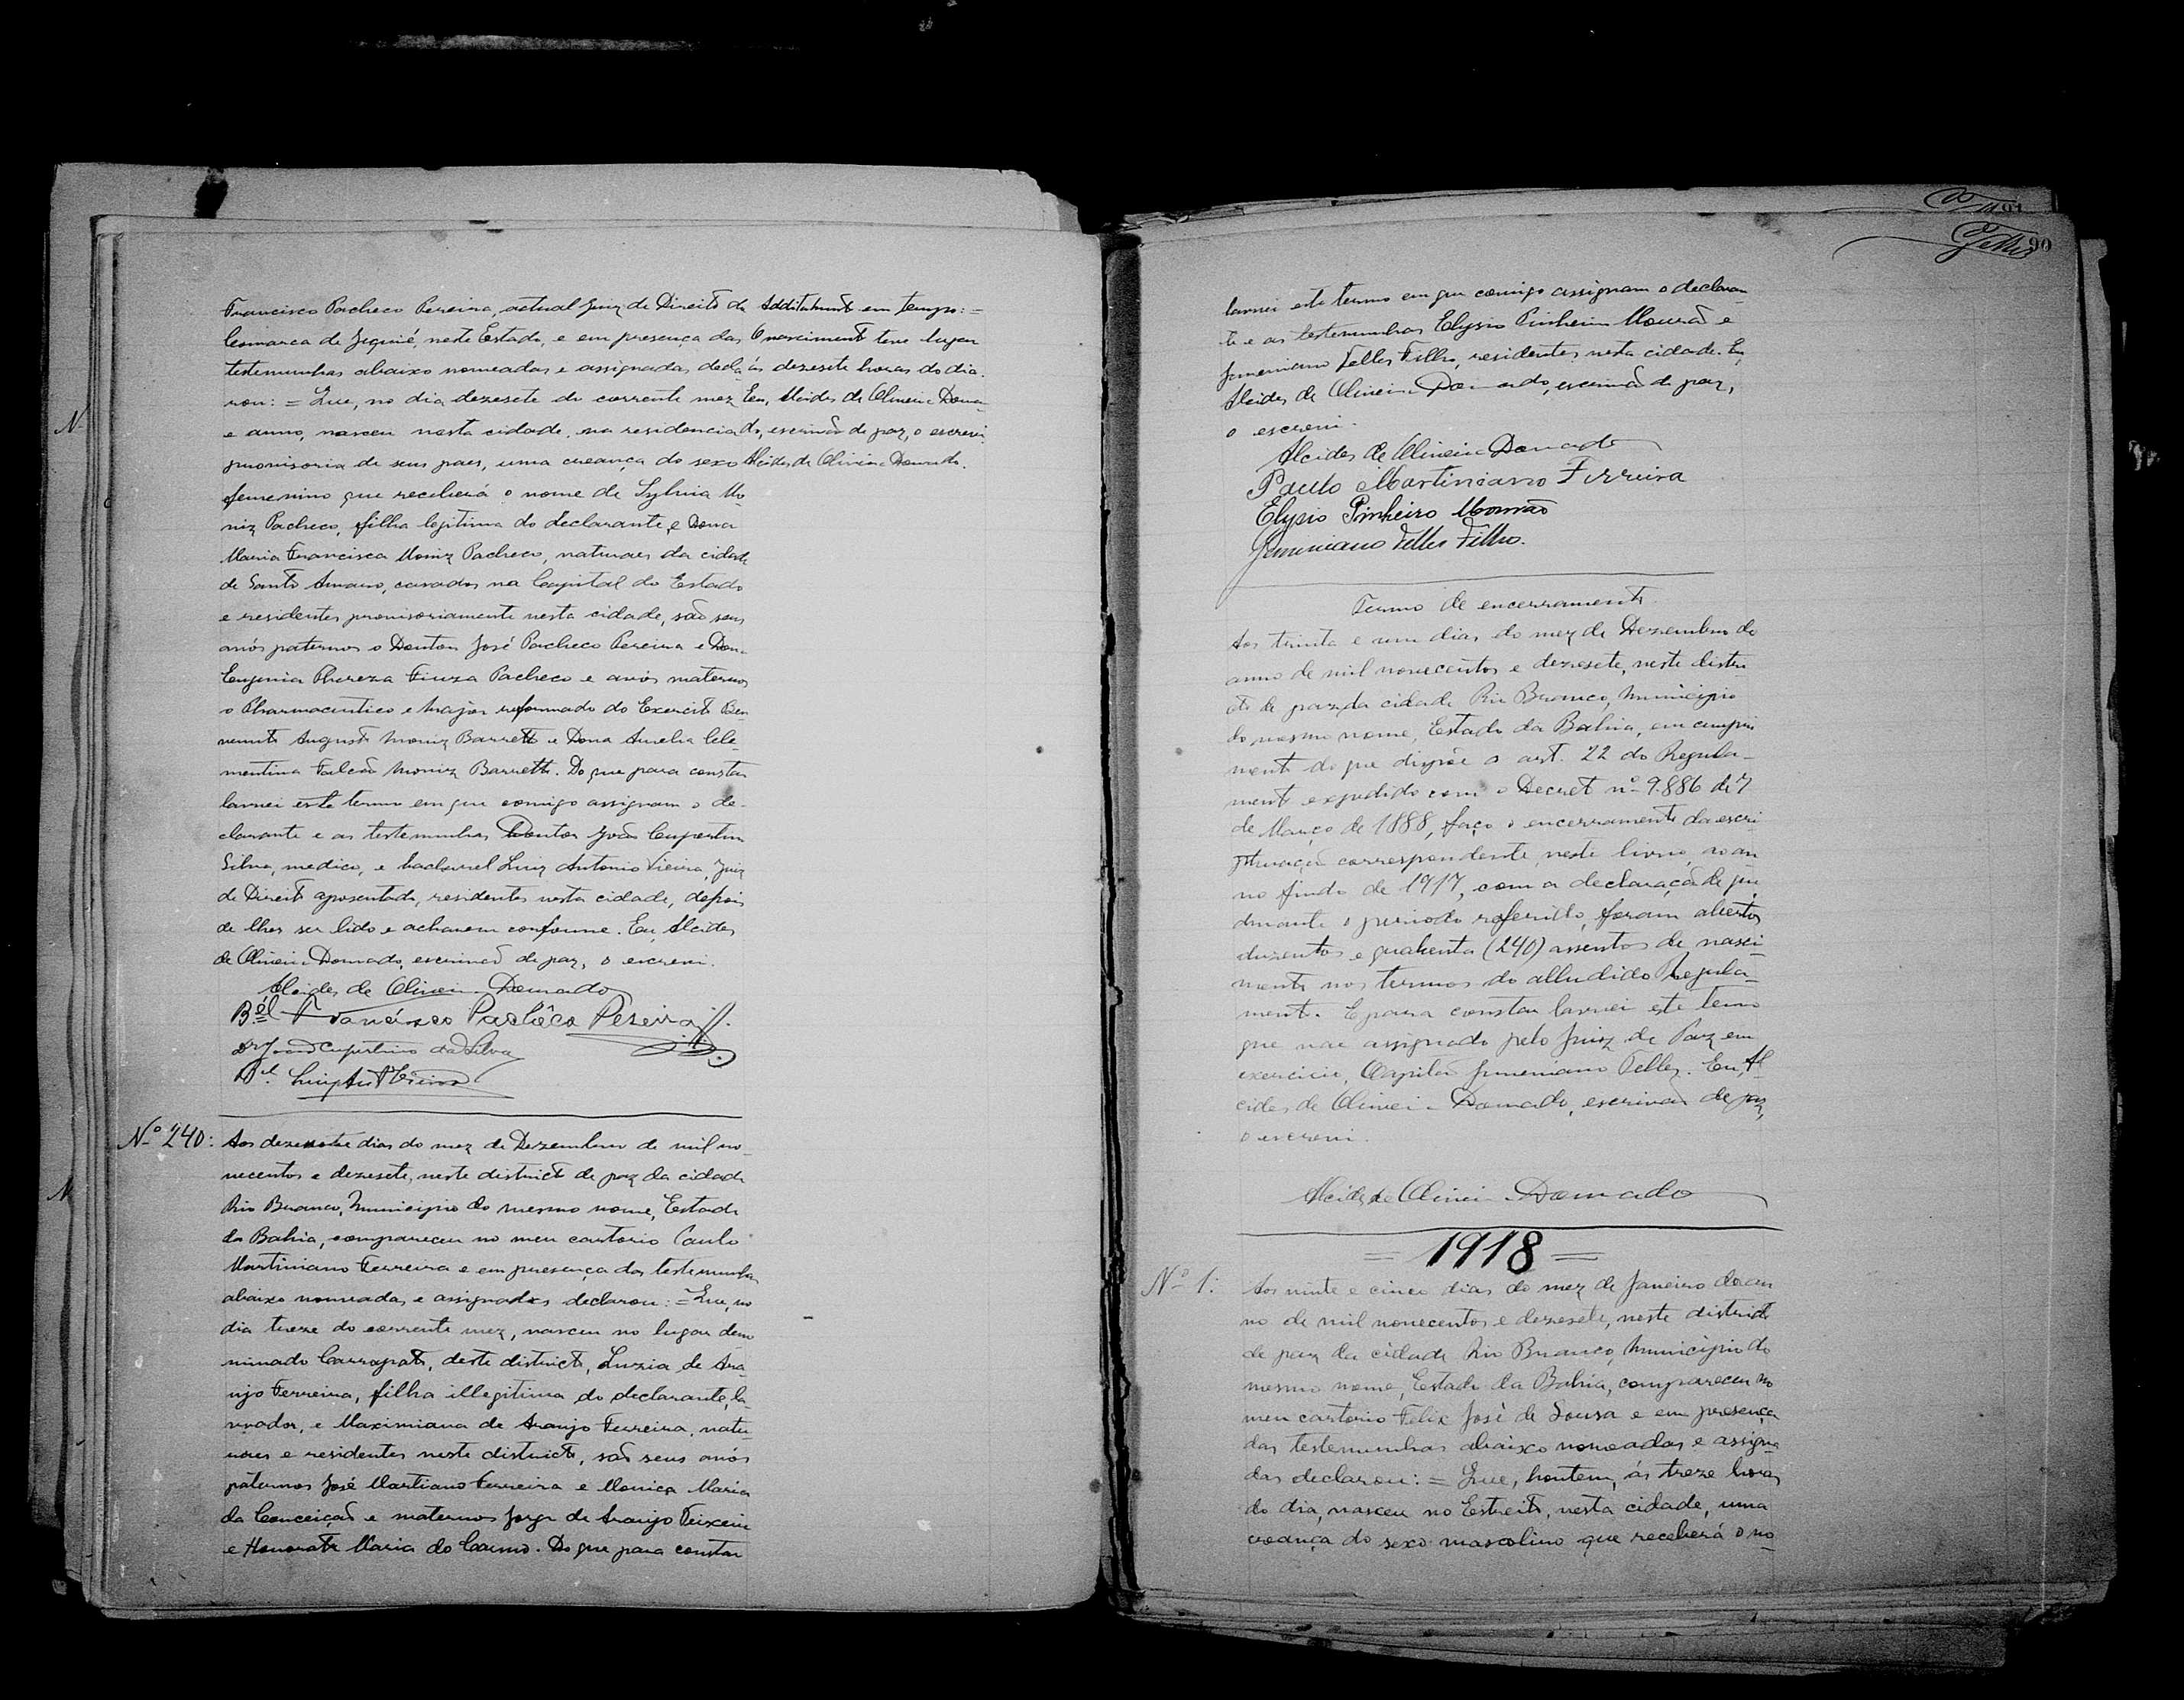 Francisco Pacheco Pereira, actual Juiz de Direito da
Comarca de Jequié, neste Estado, e em presença das
testemunhas abaixo nomeadas e assignadas, decla
rou: = Que, no dia dezesete do corrente mez
e anno, nasceu nesta cidade, na residencia
provisoria de seus paes, uma creança do sexo
femenino que receberá o nome de Sylvia Mo
niz Pacheco, filha legitima do declarante e Dona
Maria Francisca Moniz Pacheco, naturaes da cidade
de Santo Amaro, casados na Capital do Estado
e residentes provisoriamente nesta cidade, são seus
avós paternos o Doutor José Pacheco Pereira e Dona
Eugenia Thereza Fiuza Pacheco e avós maternos
o Pharmaceutico e Major reformado do Exercito Ben
venuto Augusto Moniz Barretto e Dona Amelia Cle-
mentina Falcão Moniz Barretto. Do que para constar
lavrei este termo em que comigo assignam o de-
clarante e as testemunhas Doutor João Cupertino
Silva, medico, e bacharel Luiz Antonio Vieira, Juiz
de Direito aposentado, residentes nesta cidade, depois
de lhes ser lido e acharem conforme. Eu, Alcides
de Oliveira Dourado, escrivão de paz, o escrevi.
Alcides de Oliveira Dourado
Bel Francisco Pachêco Pereira
Dr João Cupertino da Silva
Bel. Luiz Ant Vieira
Additamento em tempo: =
O nascimento teve lugar
ás dezesete horas do dia.
Eu, Alcides de Oliveira Doura-
do, escrivão de paz, o escrevi
Alcides de Oliveira Dourado.
Nº 240:
Aos dezenove dias do mez de Dezembro de mil no-
vecentos e dezesete, neste districto de paz da cidade
Rio Branco, Municipio do mesmo nome, Estado
da Bahia, compareceu no meu cartorio Paulo
Martiniano Ferreira e em presença das testemunhas
abaixo nomeadas e assignadas declarou: = Que, no
dia treze do corrente mez, nasceu no lugar deno
minado Carrapato, deste districto, Luzia de Ara
ujo Ferreira, filha illegitima do declarante, la-
vrador, e Maximiana de Araujo Ferreira, natu
raes e residentes neste districto, são seus avós
paternos José Martiano Ferreira e Monica Maria
da Conceição e maternos Jorge de Araujo Teixeira
e Honorata Maria do Carmo. Do que para constar
90
lavrei este termo em que comigo assignam o declaran
te e as testemunhas Elysio Pinheiro Mourão e
Juveniano Telles Filho, residentes nesta cidade. Eu
Alcides de Oliveira Dourado, escrivão de paz,
o escrevi.
Alcides de Oliveira Dourado
Paulo Martiniano Ferreira
Elysio Pinheiro Mourão
Juveniano Telles Filho.
Termo de encerramento
Aos trinta e um dias do mez de Dezembro do
anno de mil novecentos e dezesete, neste distri
cto de paz da cidade Rio Branco, Municipio
do mesmo nome, Estado da Bahia, em cumpri
mento do que dispõe o art. 22 do Regula-
mento expedido com o Decreto nº 9.886 de 7
de Março de 1888, faço o encerramento da escri
pturação correspondente, neste livro, ao an
no findo de 1917, com a declaração de que
durante o periodo referido, foram abertos
duzentos e quarenta (240) assentos de nasci
mento nos termos do alludido Regula-
mento. E para constar lavrei este termo
que vae assignado pelo Juiz de Paz em
exercicio, Capitão Juveniano Telles. Eu, Al
cides de Oliveira Dourado, escrivão de paz,
o escrevi.
Alcides de Oliveira Dourado
= 1918 =
Nº 1:
Aos vinte e cinco dias do mez de Janeiro do an
no de mil novecentos e dezesete, neste districto
de paz da cidade Rio Branco, Municipio do
mesmo nome, Estado da Bahia, compareceu no
meu cartorio Felix José de Sousa e em presença
das testemunhas abaixo nomeadas e assigna
das declarou: = Que, hontem, ás treze horas
do dia, nasceu no Estreito, nesta cidade, uma
creança do sexo masculino que receberá o no-